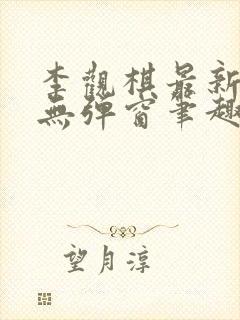 李觀棋最新
無彈窗筆趣
望月淳